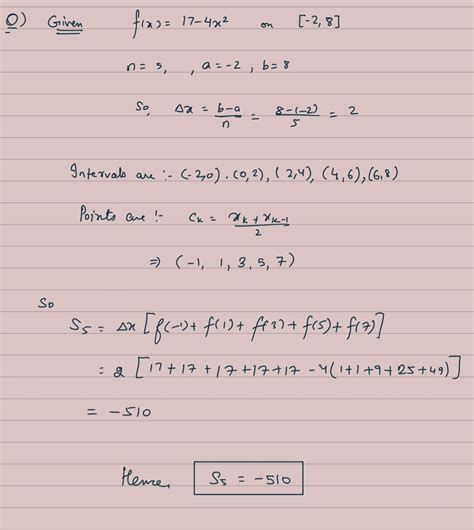 Q) Given f(x) = 17-4x² on [-2, 8]
n = 5, , a = -2, b = 8
So, Δx = b-a/n = 8-(-2)/5 = 2
Intervals are :- (-2,0), (0,2), (2,4), (4,6), (6,8)
Points are :- Cₖ = xₖ + xₖ₋₁/2
⇒ (-1, 1, 3, 5, 7)
So
S₅ = Δx [f(-1) + f(1) + f(3) + f(5) + f(7)]
= 2 [17 + 17 + 17 + 17 + 17 - 4(1+1+9+25+49)]
= -510
Hence, S₅ = -510